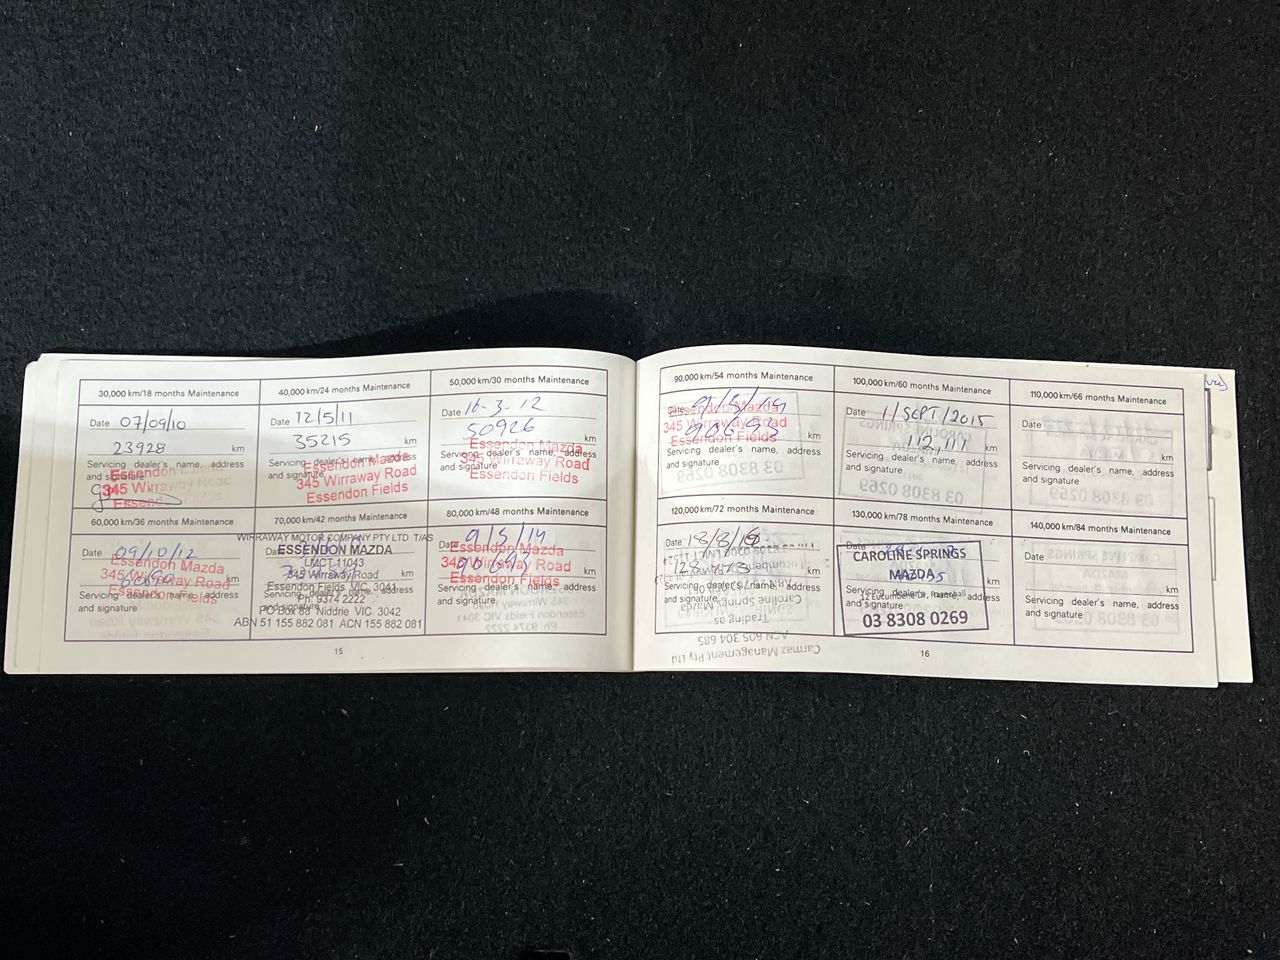 30,000 km/18 months Maintenance
Date 07/09/10
23928 km
Servicing dealer's name, address
and signature
Essendon
345 Wirraway Road
Essend
40,000 km/24 months Maintenance
Date 12/5/11
35215 km
Servicing dealer's name, address
and signature
Essendon Mazda
345 Wirraway Road
Essendon Fields
50,000 km/30 months Maintenance
Date 16-3-12
50926 km
Servicing dealer's name, address
and signature
Essendon Mazda
345 Wirraway Road
Essendon Fields
60,000 km/36 months Maintenance
Date 09/10/12
km
Servicing dealer's name, address
and signature
Essendon Mazda
345 Wirraway Road
Essendon Fields
70,000 km/42 months Maintenance
Date
km
WIRRAWAY MOTOR COMPANY PTY LTD T/AS
ESSENDON MAZDA
LMCT 11043
345 Wirraway Road
Essendon Fields VIC 3041
Ph: 9374 2222
PO Box 88 Niddrie VIC, 3042
ABN 51 155 882 081 ACN 155 882 081
80,000 km/48 months Maintenance
Date 9/5/14
km
Servicing dealer's name, address
and signature
Essendon Mazda
345 Wirraway Road
Essendon Fields
15
90,000 km/54 months Maintenance
Date
km
Servicing dealer's name, address
and signature
Essendon Mazda
345 Wirraway Road
Essendon Fields
100,000 km/60 months Maintenance
Date 1/SEPT/2015
km
Servicing dealer's name, address
and signature
110,000 km/66 months Maintenance
Date
km
Servicing dealer's name, address
and signature
120,000 km/72 months Maintenance
Date 18/8/16
km
Servicing dealer's name, address
and signature
Caroline Springs Mazda
Trading as
ACN 605 304 685
Carmaz Management Pty Ltd
130,000 km/78 months Maintenance
Date
km
Servicing dealer's name, address
and signature
CAROLINE SPRINGS
MAZDA
03 8308 0269
140,000 km/84 months Maintenance
Date
km
Servicing dealer's name, address
and signature
16